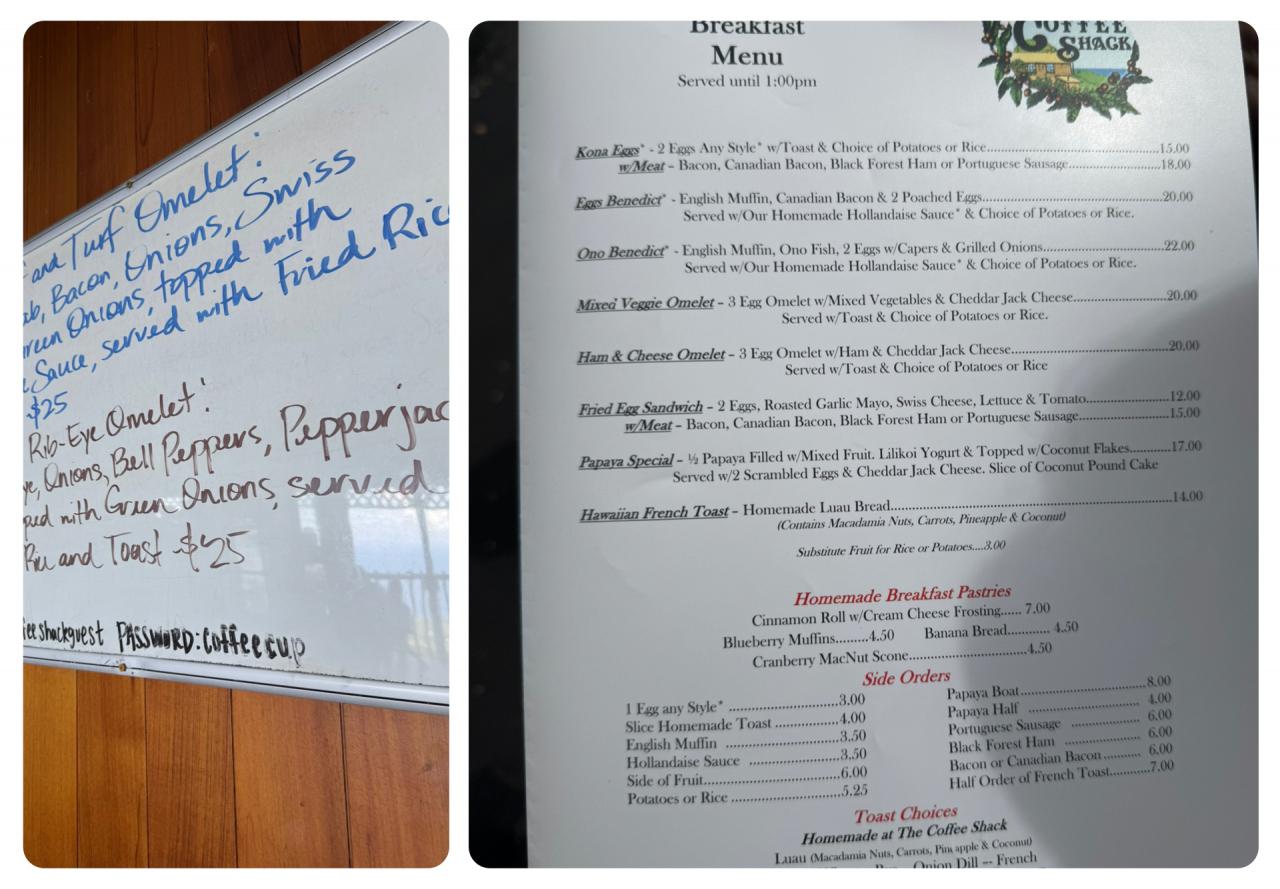 and Turf Omelet!
Bacon, Onions, Swiss
Onions, topped with
Sauce, served with Fried
-$25
Rib-Eye Omelet!
Onions, Bell Peppers,
with Green Onions, served
and Toast -$25
PASSWORD: coffeecup
Breakfast
Menu
Served until 1:00pm
COFFEE
SHACK
Kona Eggs* - 2 Eggs Any Style* w/Toast & Choice of Potatoes or Rice..........15.00
w/Meat – Bacon, Canadian Bacon, Black Forest Ham or Portuguese Sausage..........18.00
Eggs Benedict* - English Muffin, Canadian Bacon & 2 Poached Eggs..........20.00
Served w/Our Homemade Hollandaise Sauce* & Choice of Potatoes or Rice.
Ono Benedict* - English Muffin, Ono Fish, 2 Eggs w/Capers & Grilled Onions..........22.00
Served w/Our Homemade Hollandaise Sauce* & Choice of Potatoes or Rice.
Mixed Veggie Omelet – 3 Egg Omelet w/Mixed Vegetables & Cheddar Jack Cheese..........20.00
Served w/Toast & Choice of Potatoes or Rice.
Ham & Cheese Omelet – 3 Egg Omelet w/Ham & Cheddar Jack Cheese..........20.00
Served w/Toast & Choice of Potatoes or Rice
Fried Egg Sandwich – 2 Eggs, Roasted Garlic Mayo, Swiss Cheese, Lettuce & Tomato..........12.00
w/Meat – Bacon, Canadian Bacon, Black Forest Ham or Portuguese Sausage..........15.00
Papaya Special – ½ Papaya Filled w/Mixed Fruit. Lilikoi Yogurt & Topped w/Coconut Flakes..........17.00
Served w/2 Scrambled Eggs & Cheddar Jack Cheese. Slice of Coconut Pound Cake
Hawaiian French Toast – Homemade Luau Bread..........14.00
(Contains Macadamia Nuts, Carrots, Pineapple & Coconut)
Substitute Fruit for Rice or Potatoes....3.00
Homemade Breakfast Pastries
Cinnamon Roll w/Cream Cheese Frosting...... 7.00
Blueberry Muffins........4.50 Banana Bread........... 4.50
Cranberry MacNut Scone..........4.50
Side Orders
1 Egg any Style* ..........3.00
Slice Homemade Toast ..........4.00
English Muffin ..........3.50
Hollandaise Sauce ..........3.50
Side of Fruit..........6.00
Potatoes or Rice ..........5.25
Papaya Boat..........8.00
Papaya Half .......... 4.00
Portuguese Sausage .......... 6.00
Black Forest Ham .......... 6.00
Bacon or Canadian Bacon .......... 6.00
Half Order of French Toast..........7.00
Toast Choices
Homemade at The Coffee Shack
Luau (Macadamia Nuts, Carrots, Pineapple & Coconut)
Onion Dill -- French